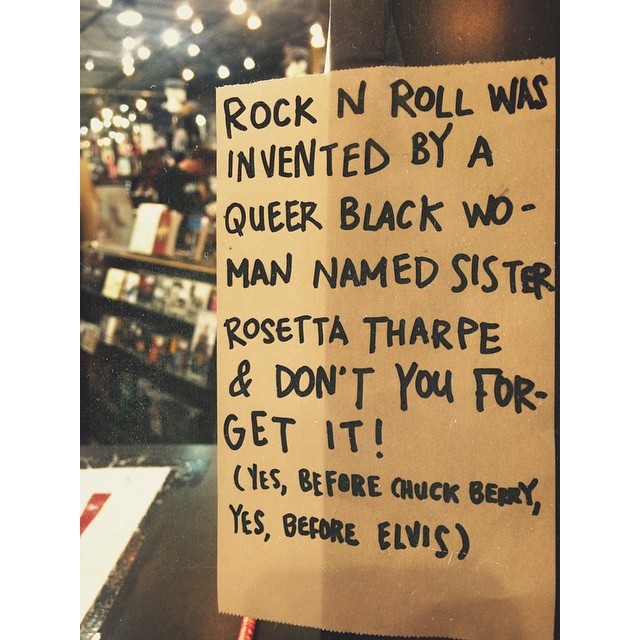 ROCK N ROLL WAS
INVENTED BY A
QUEER BLACK WO-
MAN NAMED SISTER
ROSETTA THARPE
& DON'T YOU FOR-
GET IT!
(YES, BEFORE CHUCK BERRY,
YES, BEFORE ELVIS)